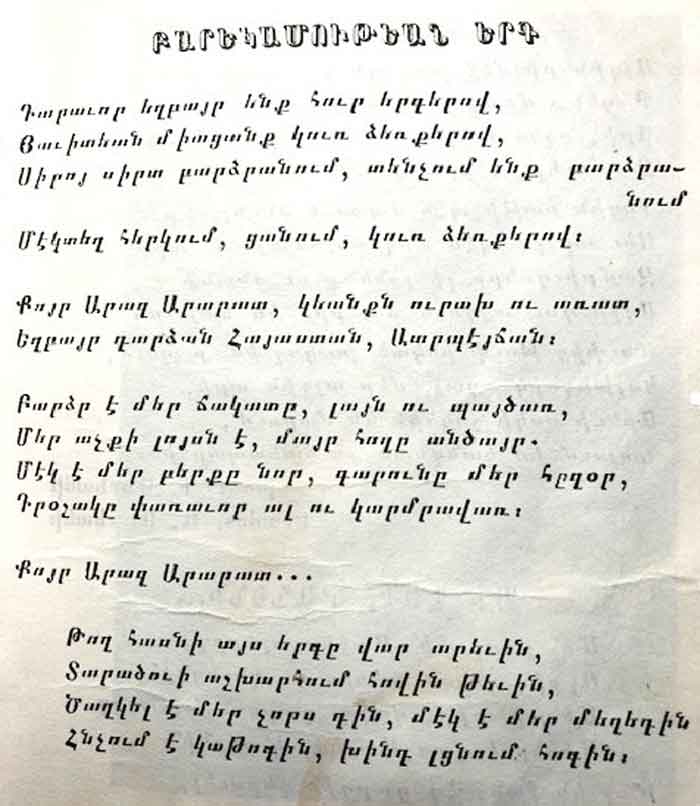 ԲԱՐԵԿԱՄՈՒԹԵԱՆ ԵՐԳ
Դարաւոր եղբայր ենք հուր երգերով,
Յաւիտեան միացանք կուռ ձեռքերով,
Սիրոյ սիրտ բարձրանում, տենչում ենք բարձրա-
նում
Մէկտեղ հերկում, ցանում, կուռ ձեռքերով։
Քոյր Արազ Արարատ, կեանքն ուրախ ու առատ,
Եղբայր դարձան Հայաստան, Ատրպէյճան։
Բարձր է մեր ճակատը, լայն ու պայծառ,
Մեր աչքի լոյսն է, մայր հողը անծայր.
Մէկ է մեր բերքը նոր, գարունը մեր հըզօր,
Դրօշակը փառաւոր ալ ու կարմրավառ։
Քոյր Արազ Արարատ...
Թող հասնի այս երգը վառ արեւին,
Տարածուի աշխարհում հովին թեւին,
Ծաղկել է մեր չորս դին, մէկ է մեր մեղեդին
Հնչում է կաթոգին, խինդ լցնում հոգին։